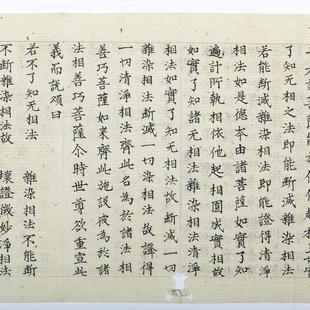 了知无相之法即能斷滅雜染相法
若能斷滅雜染相法即能證得清淨
相法如是德本由諸菩薩如實了知
遍計所執相依他起相圓成實相故
如實了知諸无相法雜染相法清淨
相法如實了知无相法故斷滅一切
雜染相法斷滅一切染相法故證得
一切清淨相法齊此名為於諸法相
善巧菩薩如來齊此施設彼為於諸
法相善巧菩薩尒時世尊欲重宣此
義而說頌曰
若不了知无相法 雜染相法不能斷
不斷雜染相法故 壞證微妙淨相法